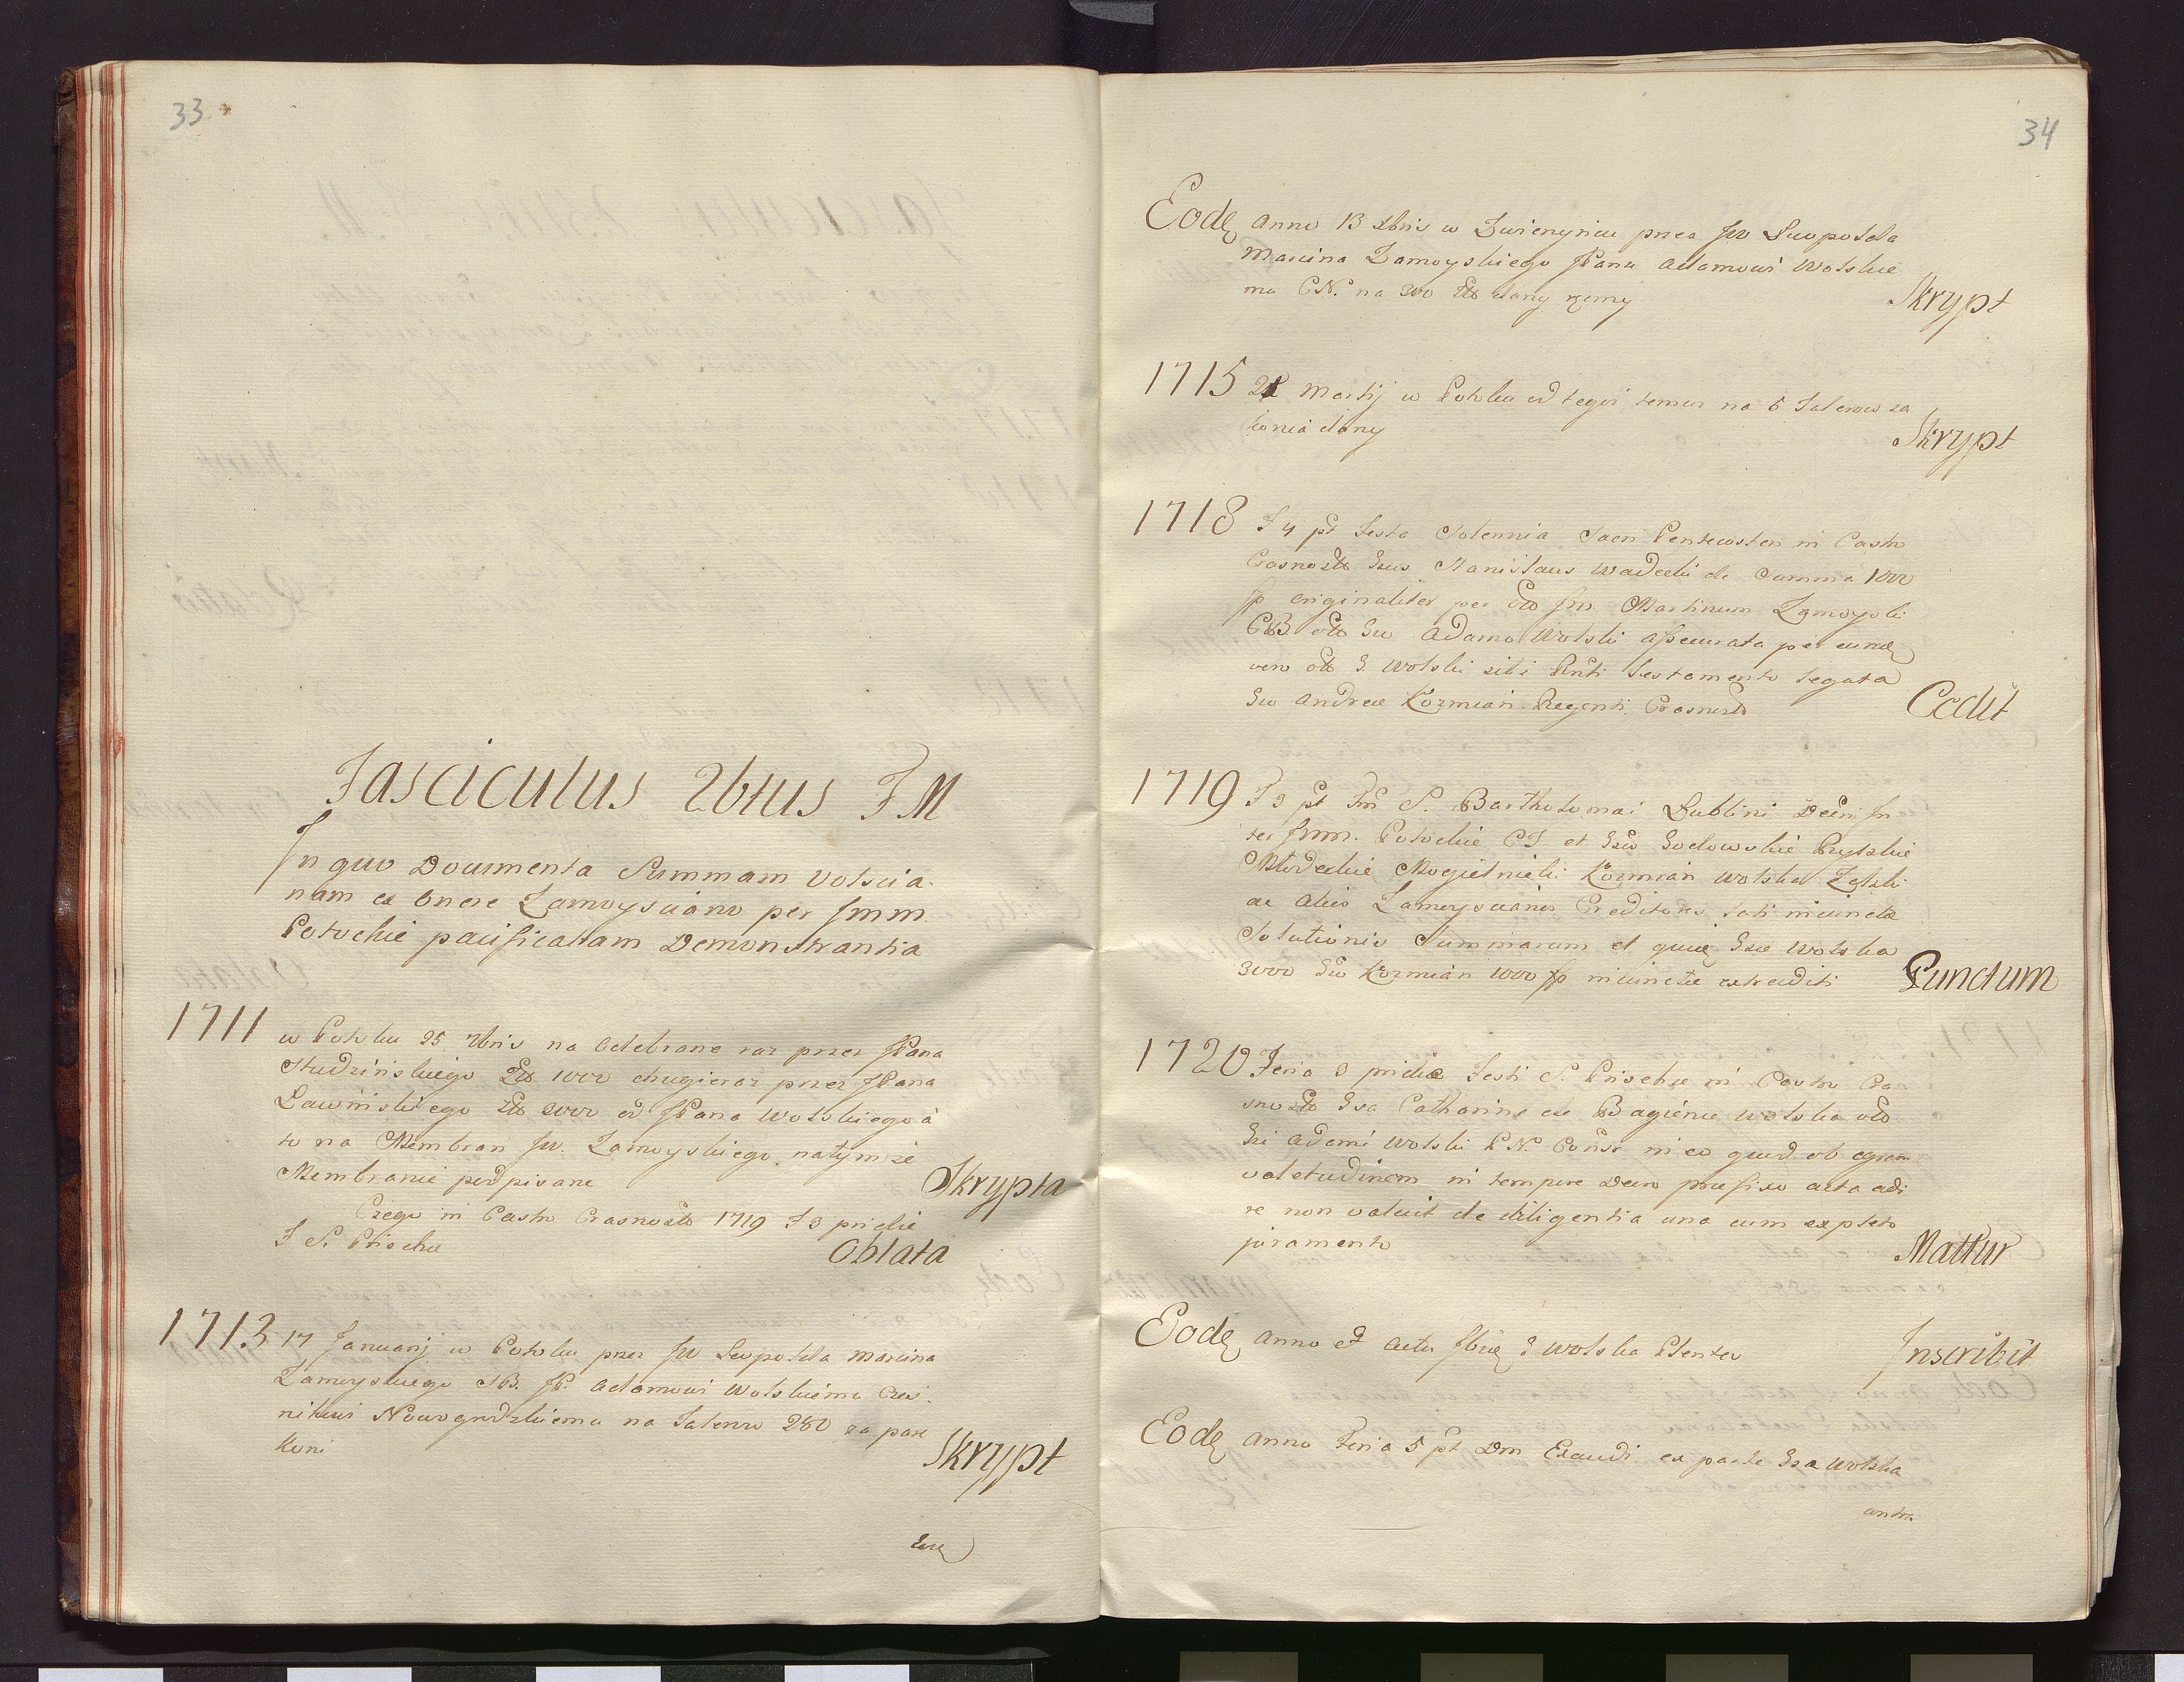 33
Fasciculus 26tus F M
In quo Documenta Summam Volscia-
nam ex onere Zamoysciano per Jmm
Potockie pacificatam Demonstrantia
1711 w Potoku 25 9bris na Odebrane raz przez JPana
Studzinskiego Zło 1000 drugi raz przez JPana
Lawinskiego Zło 2000 od JPana Wolskiego á
to na Membran JW. Zamoyskiego na tymże
Membranie podpisane Skrypta
Czego in Castro Crasnosto 1719 F 3 pridie
F S. Priscae Oblata
1713 17 Januarij w Potoku przez JW Leopolda Marcina
Zamoyskiego JP. Adamowi Wolskiemu Cześ-
nikowi Nowogrodzkiemu na Talerow 280 za pare
Koni Skrypt
34
Eodę anno 13 Xbris w Zwierzyncu przez JW Leopolda
Marcina Zamoyskiego JPanu Adamowi Wolskie
mu CN. na 300 Zło dany ręczny Skrypt
1715 Martij w Potoku od tegoż temuż na 6 Talerow za
konia dany Skrypt
1718 F 4 pt Festa Solennia Sacri Pentecostes in Castro
Crasnosto Gsus Stanislaus Wadecki de Summa 1000
fp originaliter per olo Jm Martinum Zamoyski
olo Gso Adamo Wolski assecurata per eundę
vero olo G. Wolski sibi Pnti Testamento legata
Gso Andreae Kozmian Regenti Crasnosto Cedit
1719 F 3 pt Fm S. Bartholomaei Lublini Decr. In
ter Jmm. Potockie et Gso Godowskie
Mogielnicki Kozmian Wolska Zolski
ac alios Zamoyscianos Creditores Sati injuncta
Solutionis Summarum et quia Gsae Wolska
3000 Gso Kozmian 1000 fp injunctae extraditi Punctum
1720 Feria 3 pridie Festi S. Priscae in Castro Cra
snosto Gsa Catharina de Bagienic Wolska olo
Gsi Adami Wolski PN. Consr in eo quod ob egram
valetudinem in tempore Decro praefixo acta adi
re non valuit de diligentia una cum expleto
juramento Mattur
Eodę anno et actu G Wolska Inscribit
Eodę anno Feria 5 pt Dm Exaudi ex parte Gsa Wolska